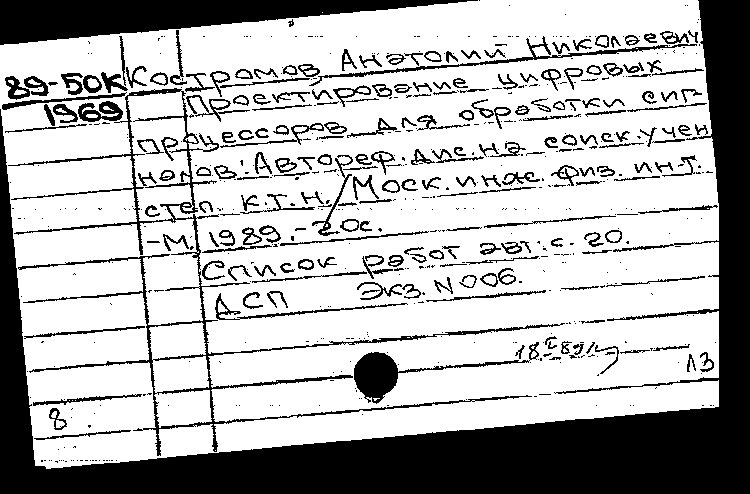 89-50К Костромов Анатолий Николаевич.
1969 Проектирование цифровых
процессоров для обработки сиг-
налов: Автореф. дис. на соиск. учен
степ. к.т.н. / Моск. инж. физ. ин-т.
-М. 1989.-20с.
Список работ авт.: с. 20.
ДСП Экз. N 006.
18.I 89г.
13
8.